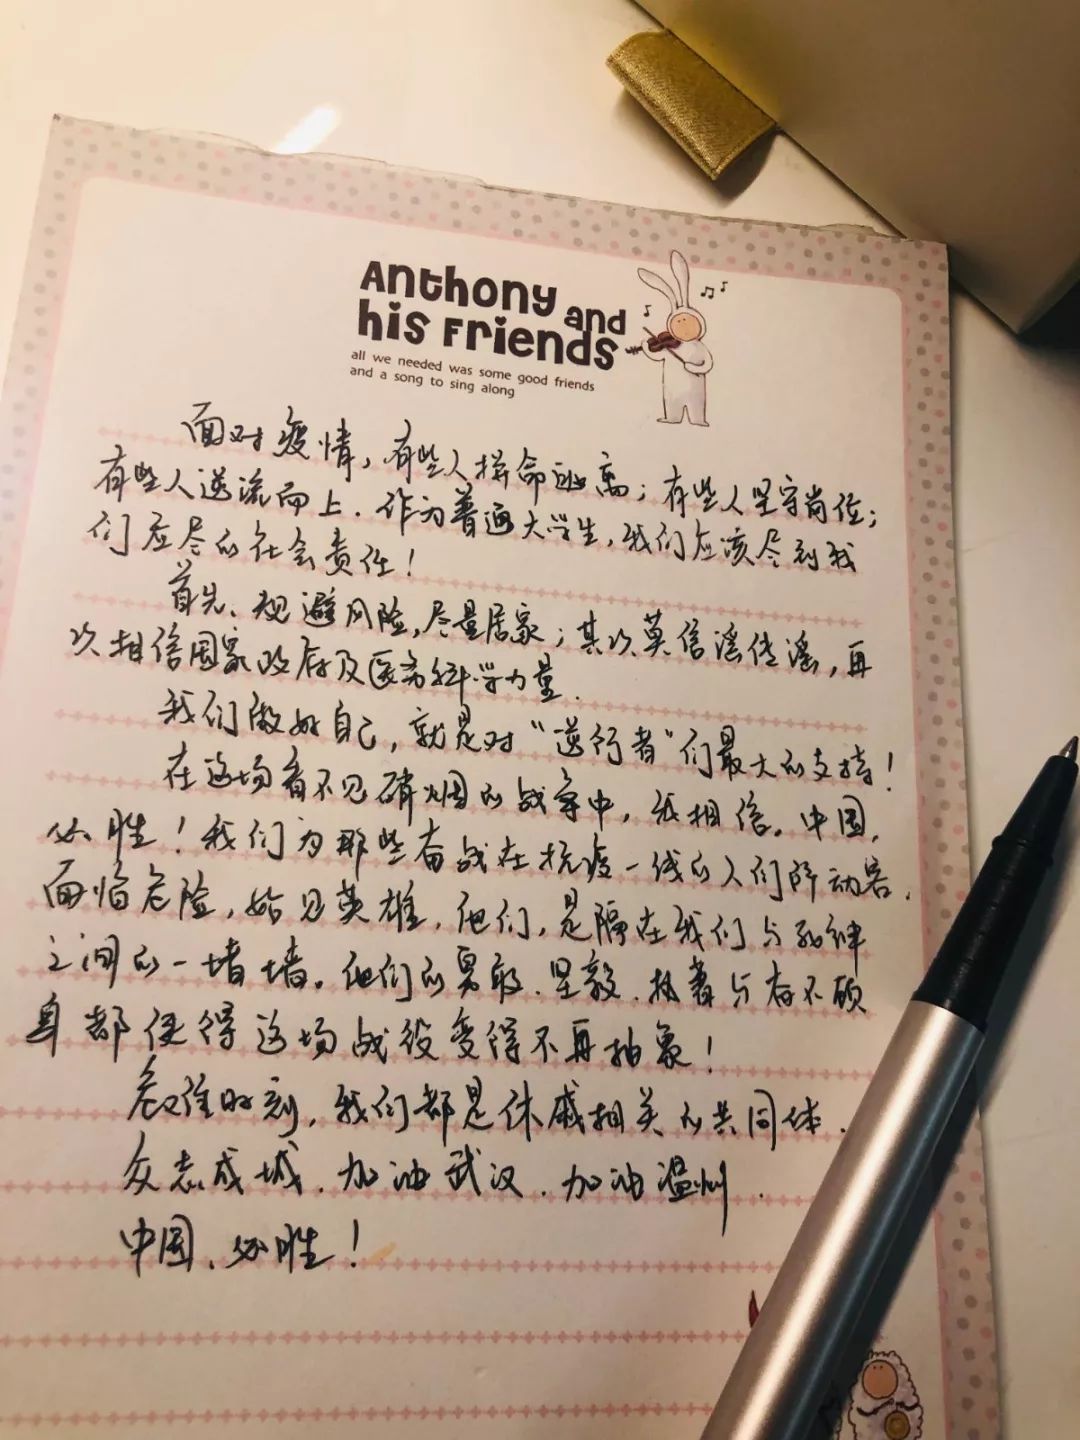 Anthony and
his Friends
all we needed was some good friends
and a song to sing along
面对疫情，有些人拼命逃离；有些人坚守岗位；
有些人逆流而上．作为普通大学生，我们应该尽到我
们应尽的社会责任！
首先、规避风险，尽量居家；其次莫信谣传谣，再
次相信国家政府及医务科学力量．
我们做好自己，就是对“逆行者”们最大的支持！
在这场看不见硝烟的战争中，我相信，中国，
必胜！我们为那些奋战在抗疫一线的人们所动容．
面临危险，始见英雄，他们，是隔在我们与死神
之间的一堵墙。他们的勇敢．坚毅．执着与奋不顾
身都使得这场战役变得不再抽象！
危难时刻，我们都是休戚相关的共同体．
众志成城．加油武汉．加油温州．
中国、必胜！